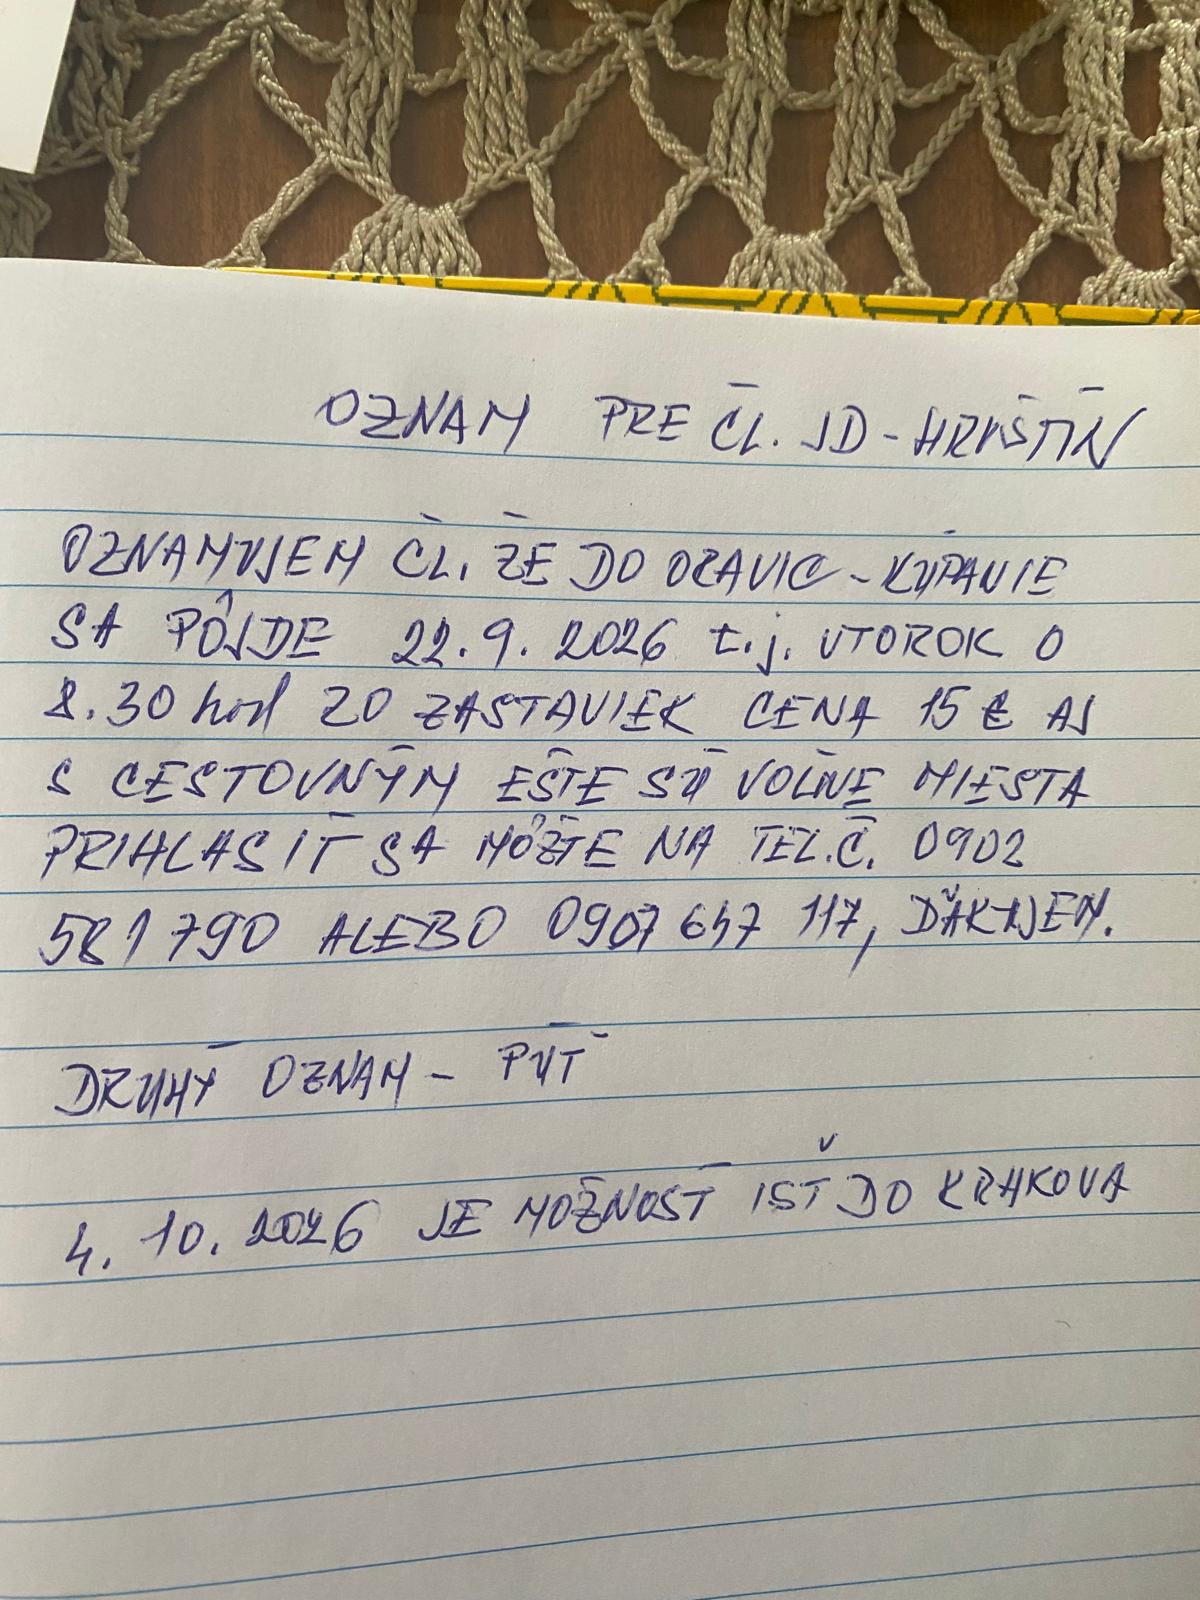 OZNAM PRE ČL. JD - HRUŠTÍN
OZNAMUJEM ČL. ŽE DO ORAVIC - KÚPANIE
SA PÔJDE 22.9.2026 t.j. UTOROK O
8.30 hod ZO ZASTAVIEK CENA 15 € AJ
S CESTOVNÝM EŠTE SÚ VOĽNE MIESTA
PRIHLASIŤ SA MÔŽTE NA TEL.Č. 0902
581 790 ALEBO 0907 647 117, ĎAKUJEM.
DRUHÝ OZNAM - PÚŤ
4. 10. 2026 JE MOŽNOSŤ ISŤ DO KRAKOVA